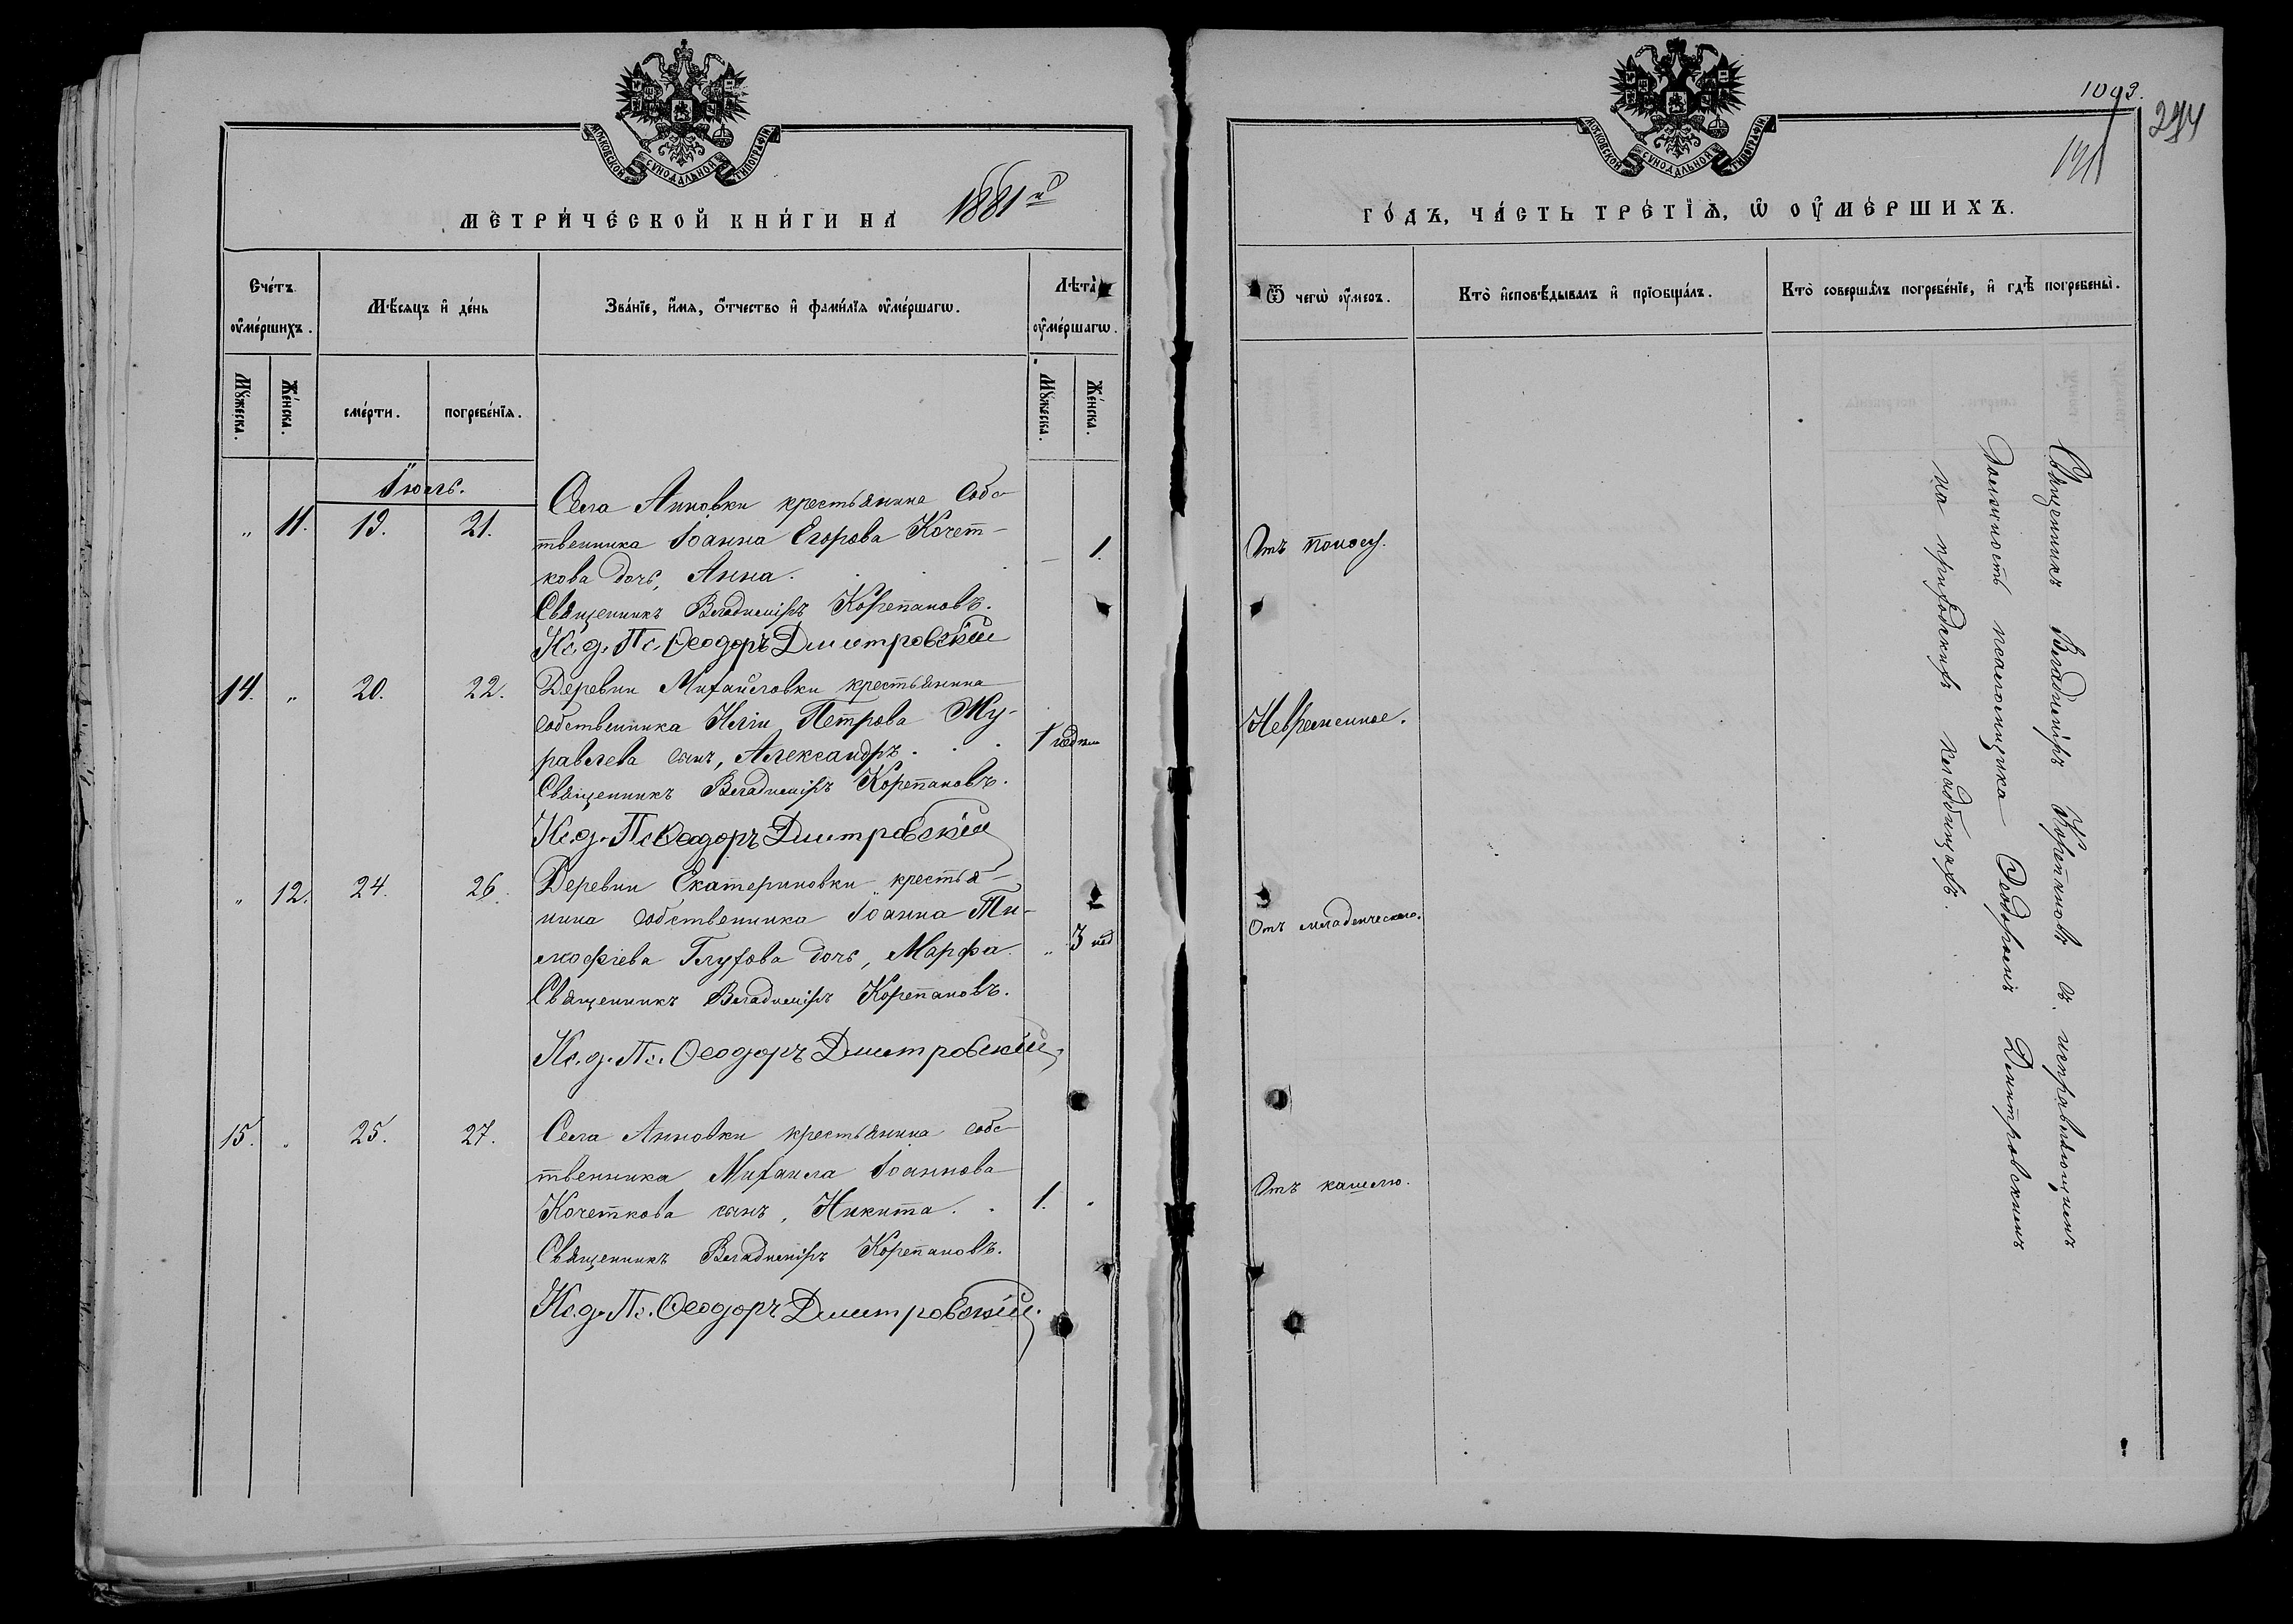 МОСКОВСКОЙ СѴНОДАЛЬНОЙ ТИПОГРАФІИ
МЕТРИ́ЧЕСКОЙ КНИ́ГИ НА 1881й
Сче́тъ ᲂу҆ме́ршихъ.
Мѣ́сяцъ и҆ де́нь
Зва́нїе, и҆́мя, ѻ҆́тчество и҆ фами́лїя ᲂу҆ме́ршагѡ.
Лѣта̀ ᲂу҆ме́ршагѡ.
Мꙋ́жеска.
Же́нска.
сме́рти.
погребе́нїя.
Мꙋ́жеска.
Же́нска.
Іюль.
„ 11. 19. 21. Села Анновки крестьянина собс-
твенника Іоанна Егорова Кочет-
кова дочь, Анна. — 1.
Священникъ Владиміръ Корепановъ.
Ис. д. Пс. Ѳеодоръ Дмитровскій
14. „ 20. 22. Деревни Михайловки крестьянина
собственника Иліи Петрова Жу-
равлева сынъ, Александръ. 1 недели
Священникъ Владиміръ Корепановъ.
Ис. д. Пс Ѳеодоръ Дмитровскій
„ 12. 24. 26. Деревни Екатериновки крестья-
нина собственника Іоанна Ти-
мофіева Глухова дочь, Марфа. „ 3 нед
Священникъ Владиміръ Корепановъ.
Ис. д. Пс. Ѳеодоръ Дмитровскій
15. „ 25. 27. Села Анновки крестьянина собс-
твенника Михаила Іоаннова
Кочеткова сынъ, Никита. 1. „
Священникъ Владиміръ Корепановъ.
Ис. д. Пс. Ѳеодоръ Дмитровскій
1093.
294
МОСКОВСКОЙ СѴНОДАЛЬНОЙ ТИПОГРАФІИ
ГО́ДЪ, ЧА́СТЬ ТРЕ́ТЇѦ, Ѡ҆ ОУ҆МЕ́РШИХЪ.
Ѿ чегѡ̀ ᲂу҆́меръ.
Кто̀ и҆сповѣ́дывалъ и҆ прїобща́лъ.
Кто̀ соверша́лъ погребе́нїе, и҆ гдѣ̀ погребены̀.
Отъ поносу.
Невременное.
Отъ младенческаго.
Отъ кашлю.
Священникъ Владиміръ Корепановъ съ исправляющимъ
должность псаломщика Ѳеодоромъ Дмитровскимъ
на приходскихъ кладбищахъ.